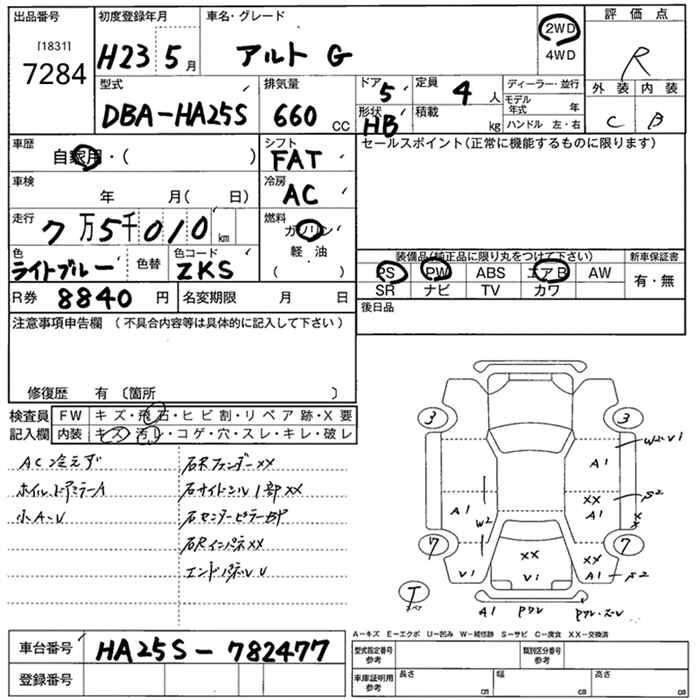 出品番号
[1831]
7284
初度登録年月
H23 5月
車名・グレード
アルト G
2WD
4WD
評価点
R
外装 内装
C B
型式
DBA-HA25S
排気量
660 CC
ドア 5
形状 HB
定員 4 人
積載 kg
ディーラー・並行
モデル年式 年
ハンドル 左・右
車歴
自家用・( )
シフト
FAT
セールスポイント(正常に機能するものに限ります)
車検
年 月( 日)
冷房
AC
走行
7万5千010km
燃料
ガソリン
軽油
( )
色
ライトブルー
色替
色コード
ZKS
装備品(純正品に限り丸をつけて下さい)
新車保証書
PS PW ABS エアB AW
SR ナビ TV カワ
有・無
R券 8840円
名変期限 月 日
後日品
注意事項申告欄 (不具合内容等は具体的に記入して下さい)
修復歴 有 〔箇所 〕
検査員
記入欄
FW キズ・飛石・ヒビ割・リペア跡・X要
内装 キズ・汚レ・コゲ・穴・スレ・キレ・破レ
AC冷えず
ホイル、ドアミラーA
小A・U
右Rフェンダー XX
右サイドシル1部XX
右センターピラーBP
右RインパネXX
エンドパネルU
3
3
A1
XX
S2
A1
W2
A1
7
7
U1
XX
U1
XX
A1
S2
A1
車台番号 HA25S-782477
登録番号
A-キズ E-エクボ U-凹み W-補修跡 S-サビ C-腐食 XX-交換済
型式指定番号
参考
類別区分番号
参考
車庫証明用
参考
長さ cm
幅 cm
高さ cm